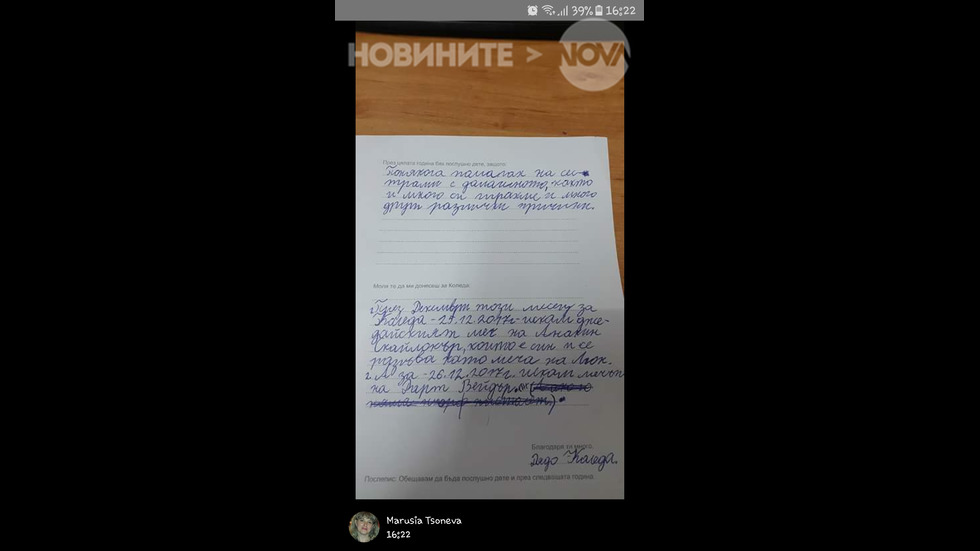 39% 16:22
НОВИНИТЕ > NOVA
През цялата година бях послушно дете, защото:
Понякога помагах на се-
с домашното, както
и много си играхме и много
други различни причини.
Моля те да ми донесеш за Коледа:
1. През Декември този месец за
Коледа - 25.12.2017г. искам дже-
дайският меч на Анакин
Скайлокър, който е син и се
като меча на Люк.
2. А за - 26.12.2017г. искам мечът
на Дарт Вейдър.
Благодаря ти много,
Дядо Коледа.
Послепис: Обещавам да бъда послушно дете и през следващата година.
Marusia Tsoneva
16:22